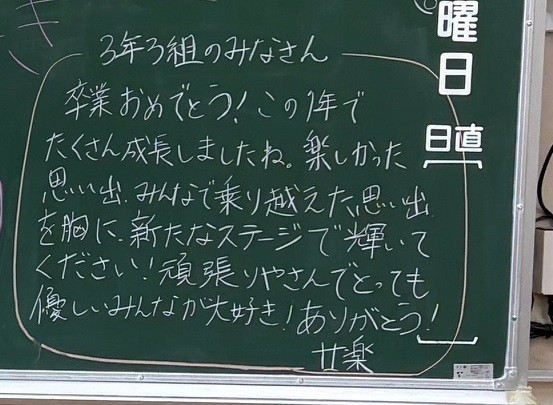 3年3組のみなさん
卒業おめでとう!この1年で
たくさん成長しましたね。楽しかった
思い出、みんなで乗り越えた思い出
を胸に、新たなステージで輝いて
ください!頑張りやさんでとっても
優しいみんなが大好き!ありがとう!
甘楽
曜日
日直